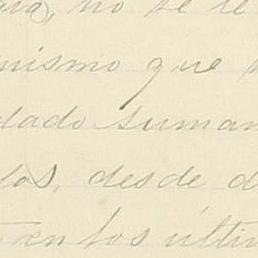 no se le
mismo que
dado suman
los, desde d
en los últim